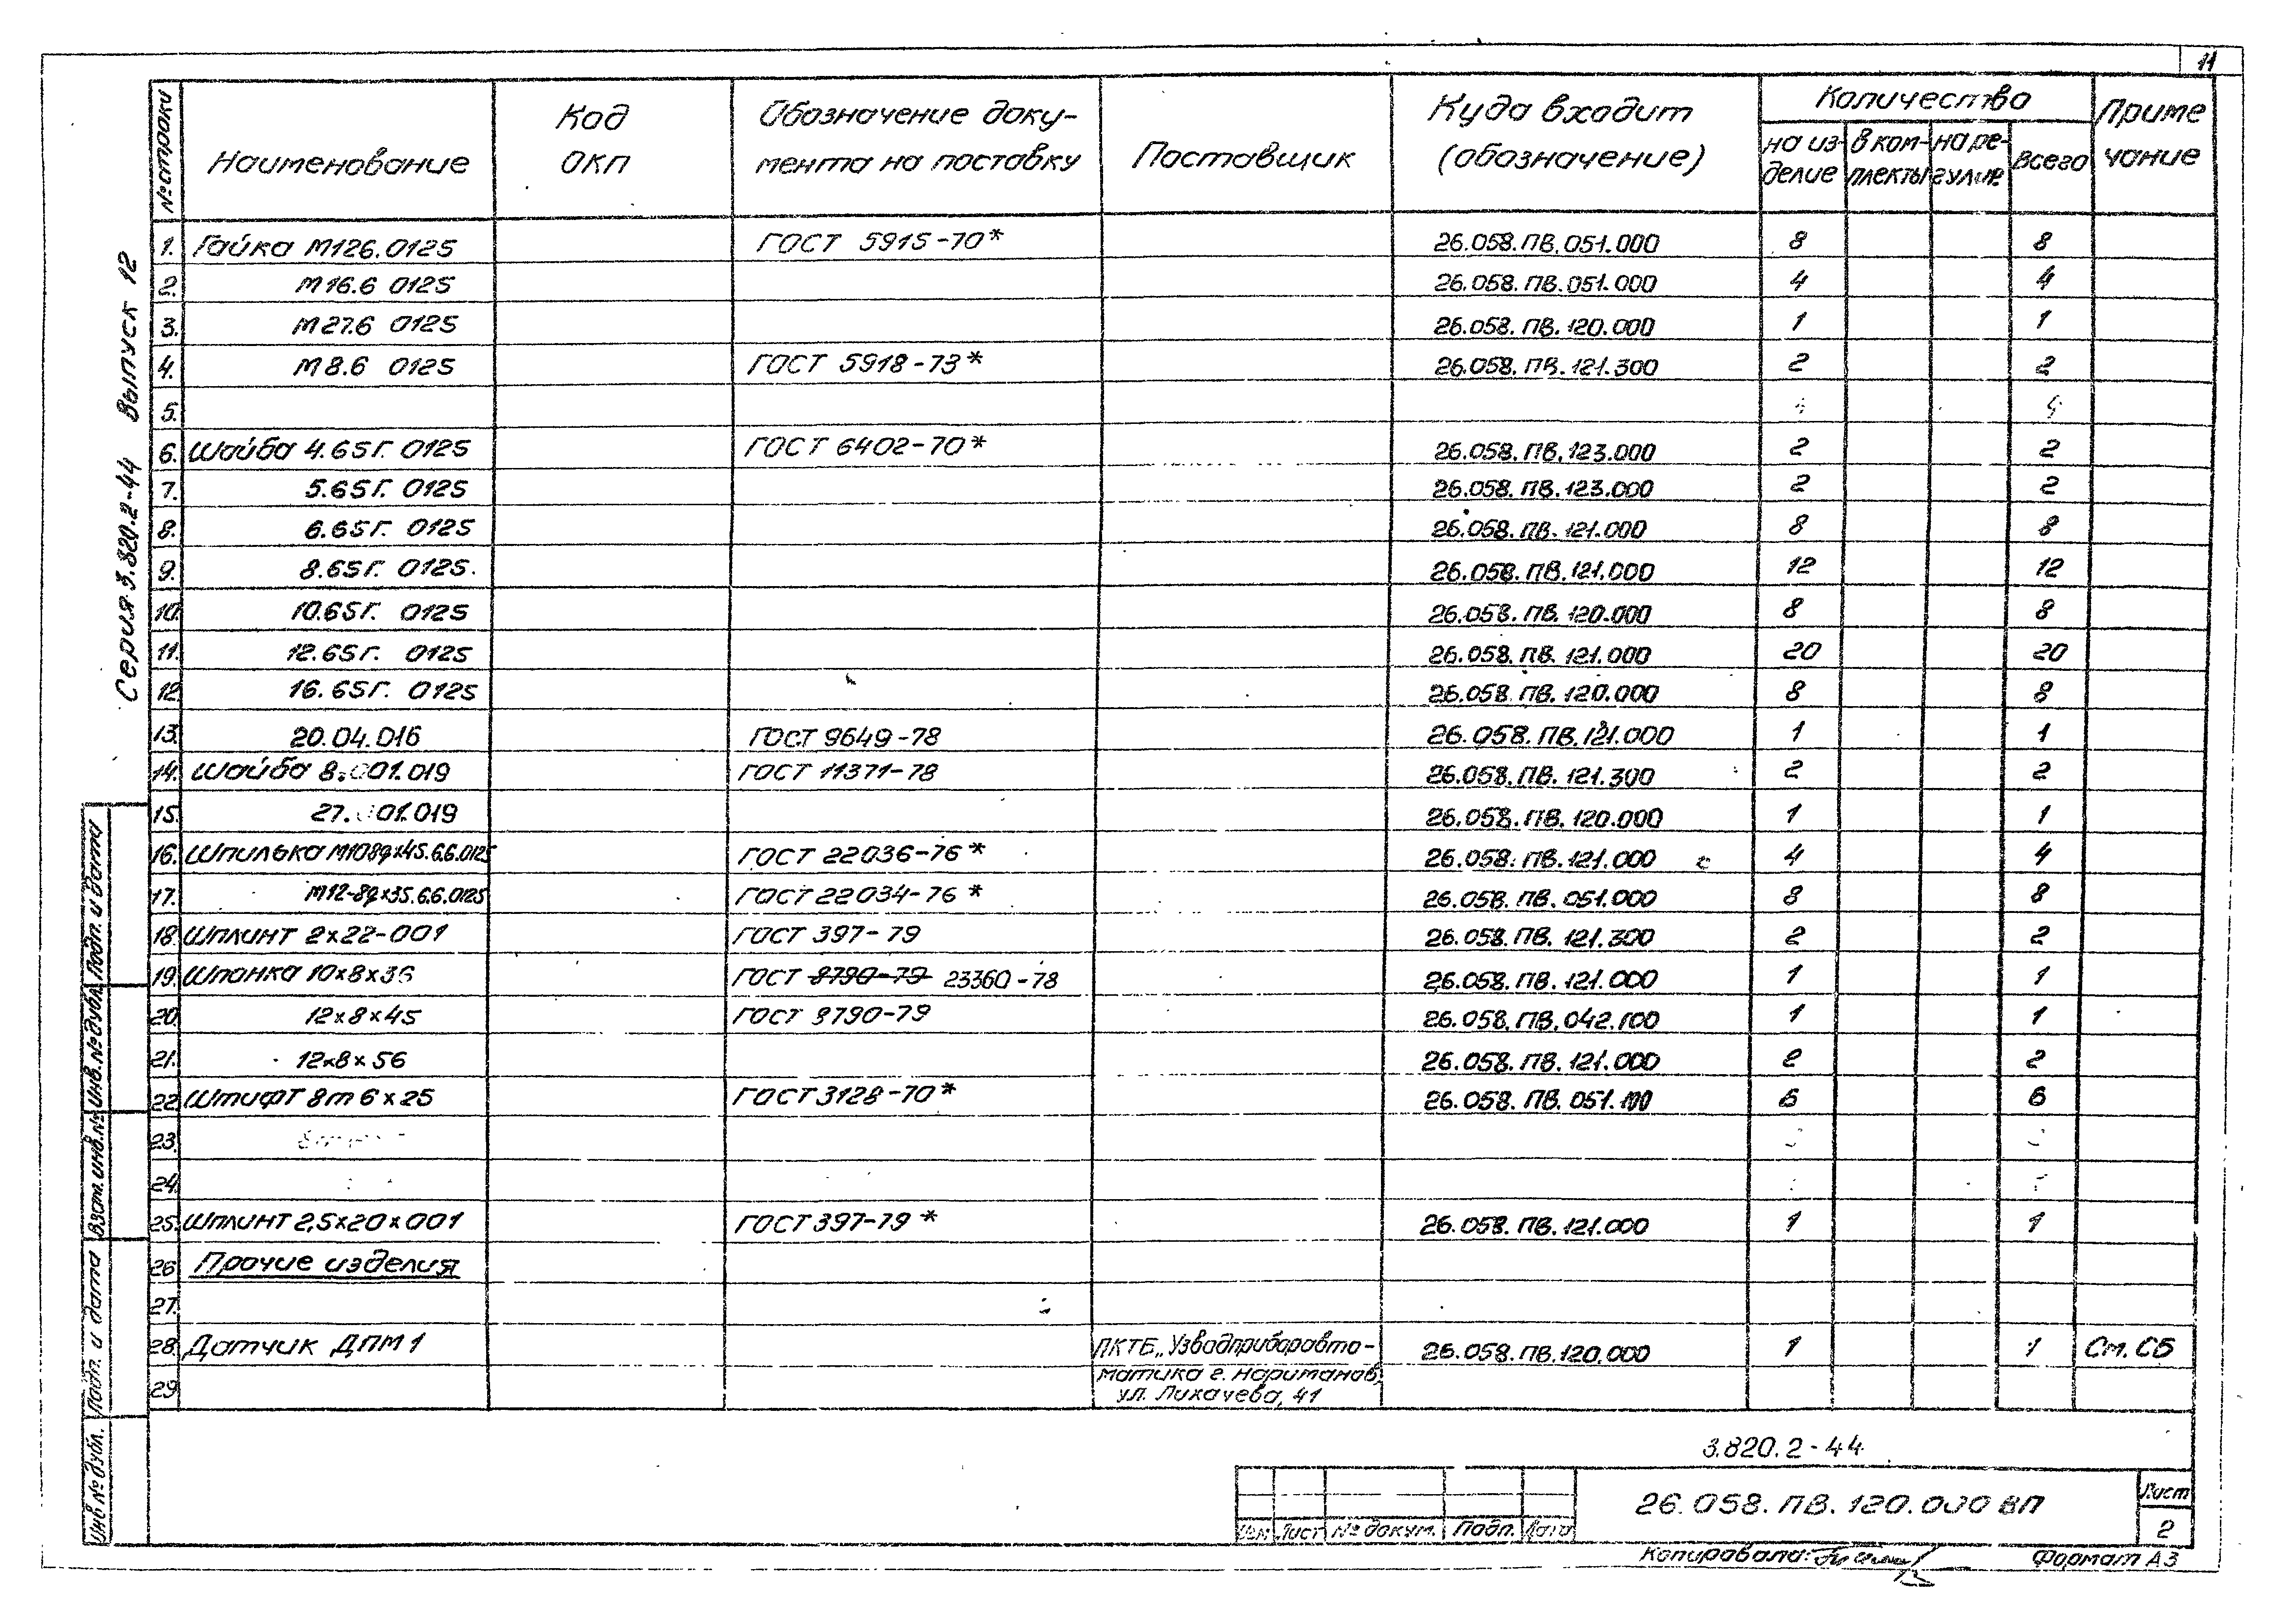 11
№ строки Наименование Код ОКП Обозначение доку-мента на поставку Поставщик Куда входит (обозначение) Количество Приме чание
на из-делие в ком-плекты на ре-гулир. всего
1. Гайка М126.0125 ГОСТ 5915-70* 26.058.ПВ.051.000 8 8
2. М16.6 0125 26.058.ПВ.051.000 4 4
3. М27.6 0125 26.058.ПВ.120.000 1 1
4. М8.6 0125 ГОСТ 5918-73* 26.058.ПВ.121.300 2 2
5.
6. Шайба 4.65Г. 0125 ГОСТ 6402-70* 26.058.ПВ.123.000 2 2
7. 5.65Г. 0125 26.058.ПВ.123.000 2 2
8. 6.65Г. 0125 26.058.ПВ.121.000 8 8
9. 8.65Г. 0125. 26.058.ПВ.121.000 12 12
10. 10.65Г. 0125 26.058.ПВ.120.000 8 8
11. 12.65Г. 0125 26.058.ПВ.121.000 20 20
12. 16.65Г. 0125 26.058.ПВ.120.000 8 8
13. 20.04.016 ГОСТ 9649-78 26.058.ПВ.121.000 1 1
14. Шайба 8.001.019 ГОСТ 11371-78 26.058.ПВ.121.300 2 2
15. 27. 01.019 26.058.ПВ.120.000 1 1
16. Шпилька М108gх45.6.6.0125 ГОСТ 22036-76* 26.058.ПВ.121.000 4 4
17. М12-8gх35.6.6.0125 ГОСТ 22034-76* 26.058.ПВ.051.000 8 8
18. Шплинт 2х22-001 ГОСТ 397-79 26.058.ПВ.121.300 2 2
19. Шпонка 10х8х36 ГОСТ 8790-79 23360-78 26.058.ПВ.121.000 1 1
20. 12х8х45 ГОСТ 8790-79 26.058.ПВ.042.100 1 1
21. 12х8х56 26.058.ПВ.121.000 2 2
22. Штифт 8m6х25 ГОСТ 3128-70* 26.058.ПВ.051.100 6 6
23.
24.
25. Шплинт 2,5х20х001 ГОСТ 397-79* 26.058.ПВ.121.000 1 1
26 Прочие изделия
27.
28. Датчик ДПМ1 ПКТБ „Узводприборавто- 26.058.ПВ.120.000 1 1 См. СБ
29 матика г. Нариманов,
ул. Лихачева, 41
Серия 3.820.2-44 Выпуск 12
Подп. и дата
Инв. № дубл.
Взам. инв. №
Подп. и дата
Инв № дубл.
3.820.2-44
26.058.ПВ.120.000 ВП
Лист
2
Изм Лист № докум. Подп. Дата
Копировала: Формат А3